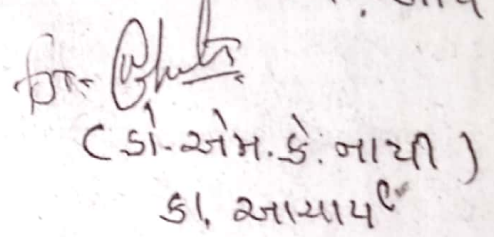 (ડૉ. એમ. કે. નાયી)
કા. આચાર્ય